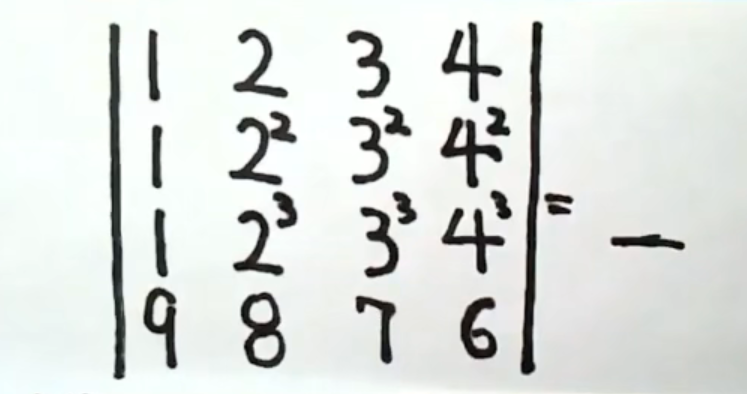 1 2 3 4
1 2² 3² 4²
1 2³ 3³ 4³ = —
9 8 7 6